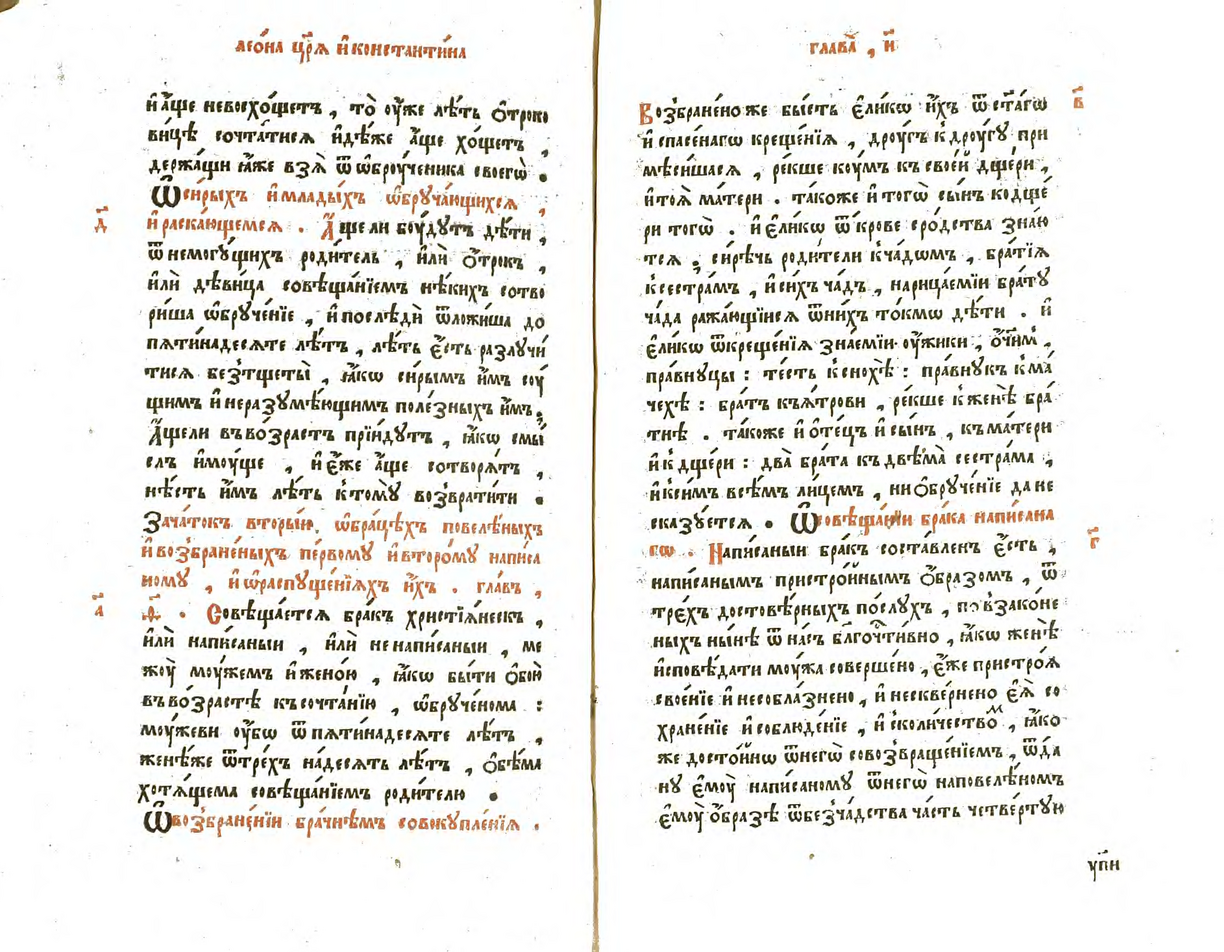 леѡ́на цр҃ѧ̀ и҆ константи́на
и҆ а҆́ще невосхо́щетъ , то̀ ᲂу҆́же лѣ́ть ѻ҆троко
ви́цѣ сочта́тисѧ и҆дѣ́же а҆́ще хо́щетъ ,
держа́щи ꙗ҆́же взѧ̀ ѿ ѡ҆брꙋ́ченика своегѡ̀ .
Ѿ си́рыхъ и҆ млады́хъ ѡ҆брꙋча́ющихсѧ ,
д҃
и҆ раска́ющемсѧ . А҆́ще ли бꙋ́дꙋтъ дѣ́ти ,
ѿ немогꙋ́щихъ роди́тель , и҆лѝ ѻ҆́трокъ ,
и҆лѝ дѣви́ца совѣща́нїемъ нѣ́кихъ сотво
ри́ша ѡ҆брꙋче́нїе , и҆ послѣдѝ ѿложи́ша до
пѧтина́десѧте лѣ́тъ , лѣ́ть є҆́сть разлꙋчи́
тисѧ безтщеты̀ , ꙗ҆́кѡ си́рымъ и҆̀мъ сꙋ́
щимъ и҆ неразꙋмѣ́ющимъ поле́зныхъ и҆̀мъ .
А҆́щели въ во́зрастъ прїи́дꙋтъ , ꙗ҆́кѡ смы́
слъ и҆мꙋ́ще , и҆ є҆́же а҆́ще сотворѧ́тъ ,
нѣ́сть и҆̀мъ лѣ́ть ктомꙋ̀ возврати́ти .
Зача́токъ вторы́и , ѡ҆бра́цѣхъ повелѣ́ныхъ
и҆ возбране́ныхъ пе́рвомꙋ и҆ второ́мꙋ написа
номꙋ , и҆ ѡ҆распꙋще́нїѧхъ и҆́хъ . главъ ,
а҃
д҃ . Совѣща́етсѧ бра́къ христїѧ́нескъ ,
и҆лѝ напи́саныи , и҆лѝ не напи́саныи , ме
жꙋ̀ мꙋ́жемъ и҆ жено́ю , ꙗ҆́кѡ бы́ти ѻ҆бою̀
въ во́зрастѣ къ сочта́нїю , ѡ҆брꙋче́нома :
мꙋ́жеви ᲂу҆́бѡ ѿ пѧтина́десѧте лѣ́тъ ,
женѣ́же ѿ тре́хъ на́десѧть лѣ́тъ , ѻ҆бѣ́ма
хотѧ́щема совѣща́нїемъ роди́телю .
Ѿ возбране́нїи бра́чнѣмъ совокꙋпле́нїѧ .
глава̀ , и҃
Возбране́но же бы́сть є҆ли́кѡ и҆́хъ ѿ ст҃а́гѡ
в҃
и҆ спасе́нагѡ креще́нїѧ , дрꙋ́гъ к дрꙋ́гꙋ при
мѣси́шасѧ , ре́кше кꙋ́мъ къ свое́й дще́ри ,
и҆ тоѧ̀ ма́тери . та́коже и҆ тогѡ̀ сы́нъ ко дще́
ри тогѡ̀ . и҆ є҆ли́кѡ ѿ кро́ве сро́дства зна́ю
тсѧ , си́рѣчь роди́тели к ча́дѡмъ , бра́тїѧ
к сестра́мъ , и҆ си́хъ ча́дъ , нарица́емїи бра́тꙋ
ча́да ража́ющїисѧ ѿ ни́хъ то́кмѡ дѣ́ти . и҆
є҆ли́кѡ ѿ креще́нїѧ зна́емїи ᲂу҆́жики , ѻ҆́чїмъ ,
пра́внꙋцы : те́сть к сносѣ̀ : пра́внꙋкъ к ма́
чехѣ : бра́тъ къ ѧ҆́трови , ре́кше к женѣ̀ бра́
тнѣ . та́коже и҆ ѻ҆те́цъ и҆ сы́нъ , къ ма́тери
и҆ к дще́ри : два̀ бра́та къ двѣ́ма сестра́ма ,
и҆ к си́мъ всѣ́мъ ли́цемъ , ни ѻ҆брꙋче́нїе да не
сказꙋ́етсѧ . Ѿ совѣща́нїи бра́ка написана
г҃
гѡ . Напи́саныи бра́къ соста́вленъ є҆́сть ,
написа́нымъ пристро́йнымъ ѻ҆́бразомъ , ѿ
тре́хъ достовѣ́рныхъ по́слꙋхъ , по взако́не
ныхъ ны́нѣ ѿ на́съ бл҃гоч҇ти́вно , ꙗ҆́кѡ женѣ̀
и҆сповѣ́дати мꙋ́жа соверше́но , є҆́же пристро́ѧ
своенїе и҆ несобла́знено , и҆ нескве́рнено є҆ѧ̀ со
хране́нїе и҆ соблюде́нїе , и҆ сколи́чествомъ , ꙗ҆́ко
же досто́йнѡ ѿ него̀ со возвраще́нїемъ , ѿда́
нꙋ є҆мꙋ̀ напи́саномꙋ ѿ него̀ на повелѣ́номъ
є҆мꙋ̀ ѻ҆́бразѣ ѿ безча́дства ча́сть четве́ртꙋю
ᲂу҆пи